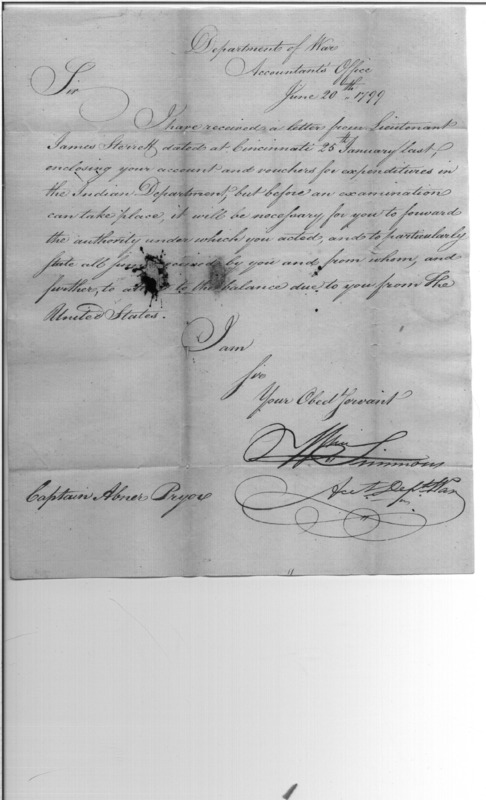 Department of War
Accountant's Office
June 20th 1799
Sir
I have received a letter from Lieutenant
James Sterrett dated at Cincinnati 25th January last,
enclosing your account and vouchers for expenditures in
the Indian Department, but before an examination
can take place, it will be necessary for you to forward
the authority under which you acted, and to particularly
state all by you and from whom, and
further, to to the balance due to you from the
United States.
I am
Sir
Your Obedt Servant
Wm Simmons
Acct. Dept. War
Captain Abner Pryor